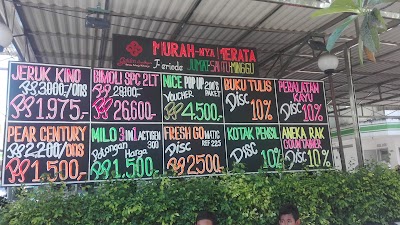 MURAH-NYA MERATA
Periode JUMAT SABTU MINGGU
JERUK KINO
3000/ons
1.975,-
BIMOLI SPC 2LT
28.100
26.600
NICE POP UP 200'S
Voucher
4.500
BUKU TULIS
Disc 10%
PERALATAN KAYU
Disc 10%
PEAR CENTURY
2.200/ons
1.500,-
MILO 3IN1 ACTIGEN
Potongan Harga
1.500
FRESH GO MATIC
Disc REF 225
2500
KOTAK PENSIL
Disc 10%
ANEKA RAK
COUNTAINER
Disc 10%